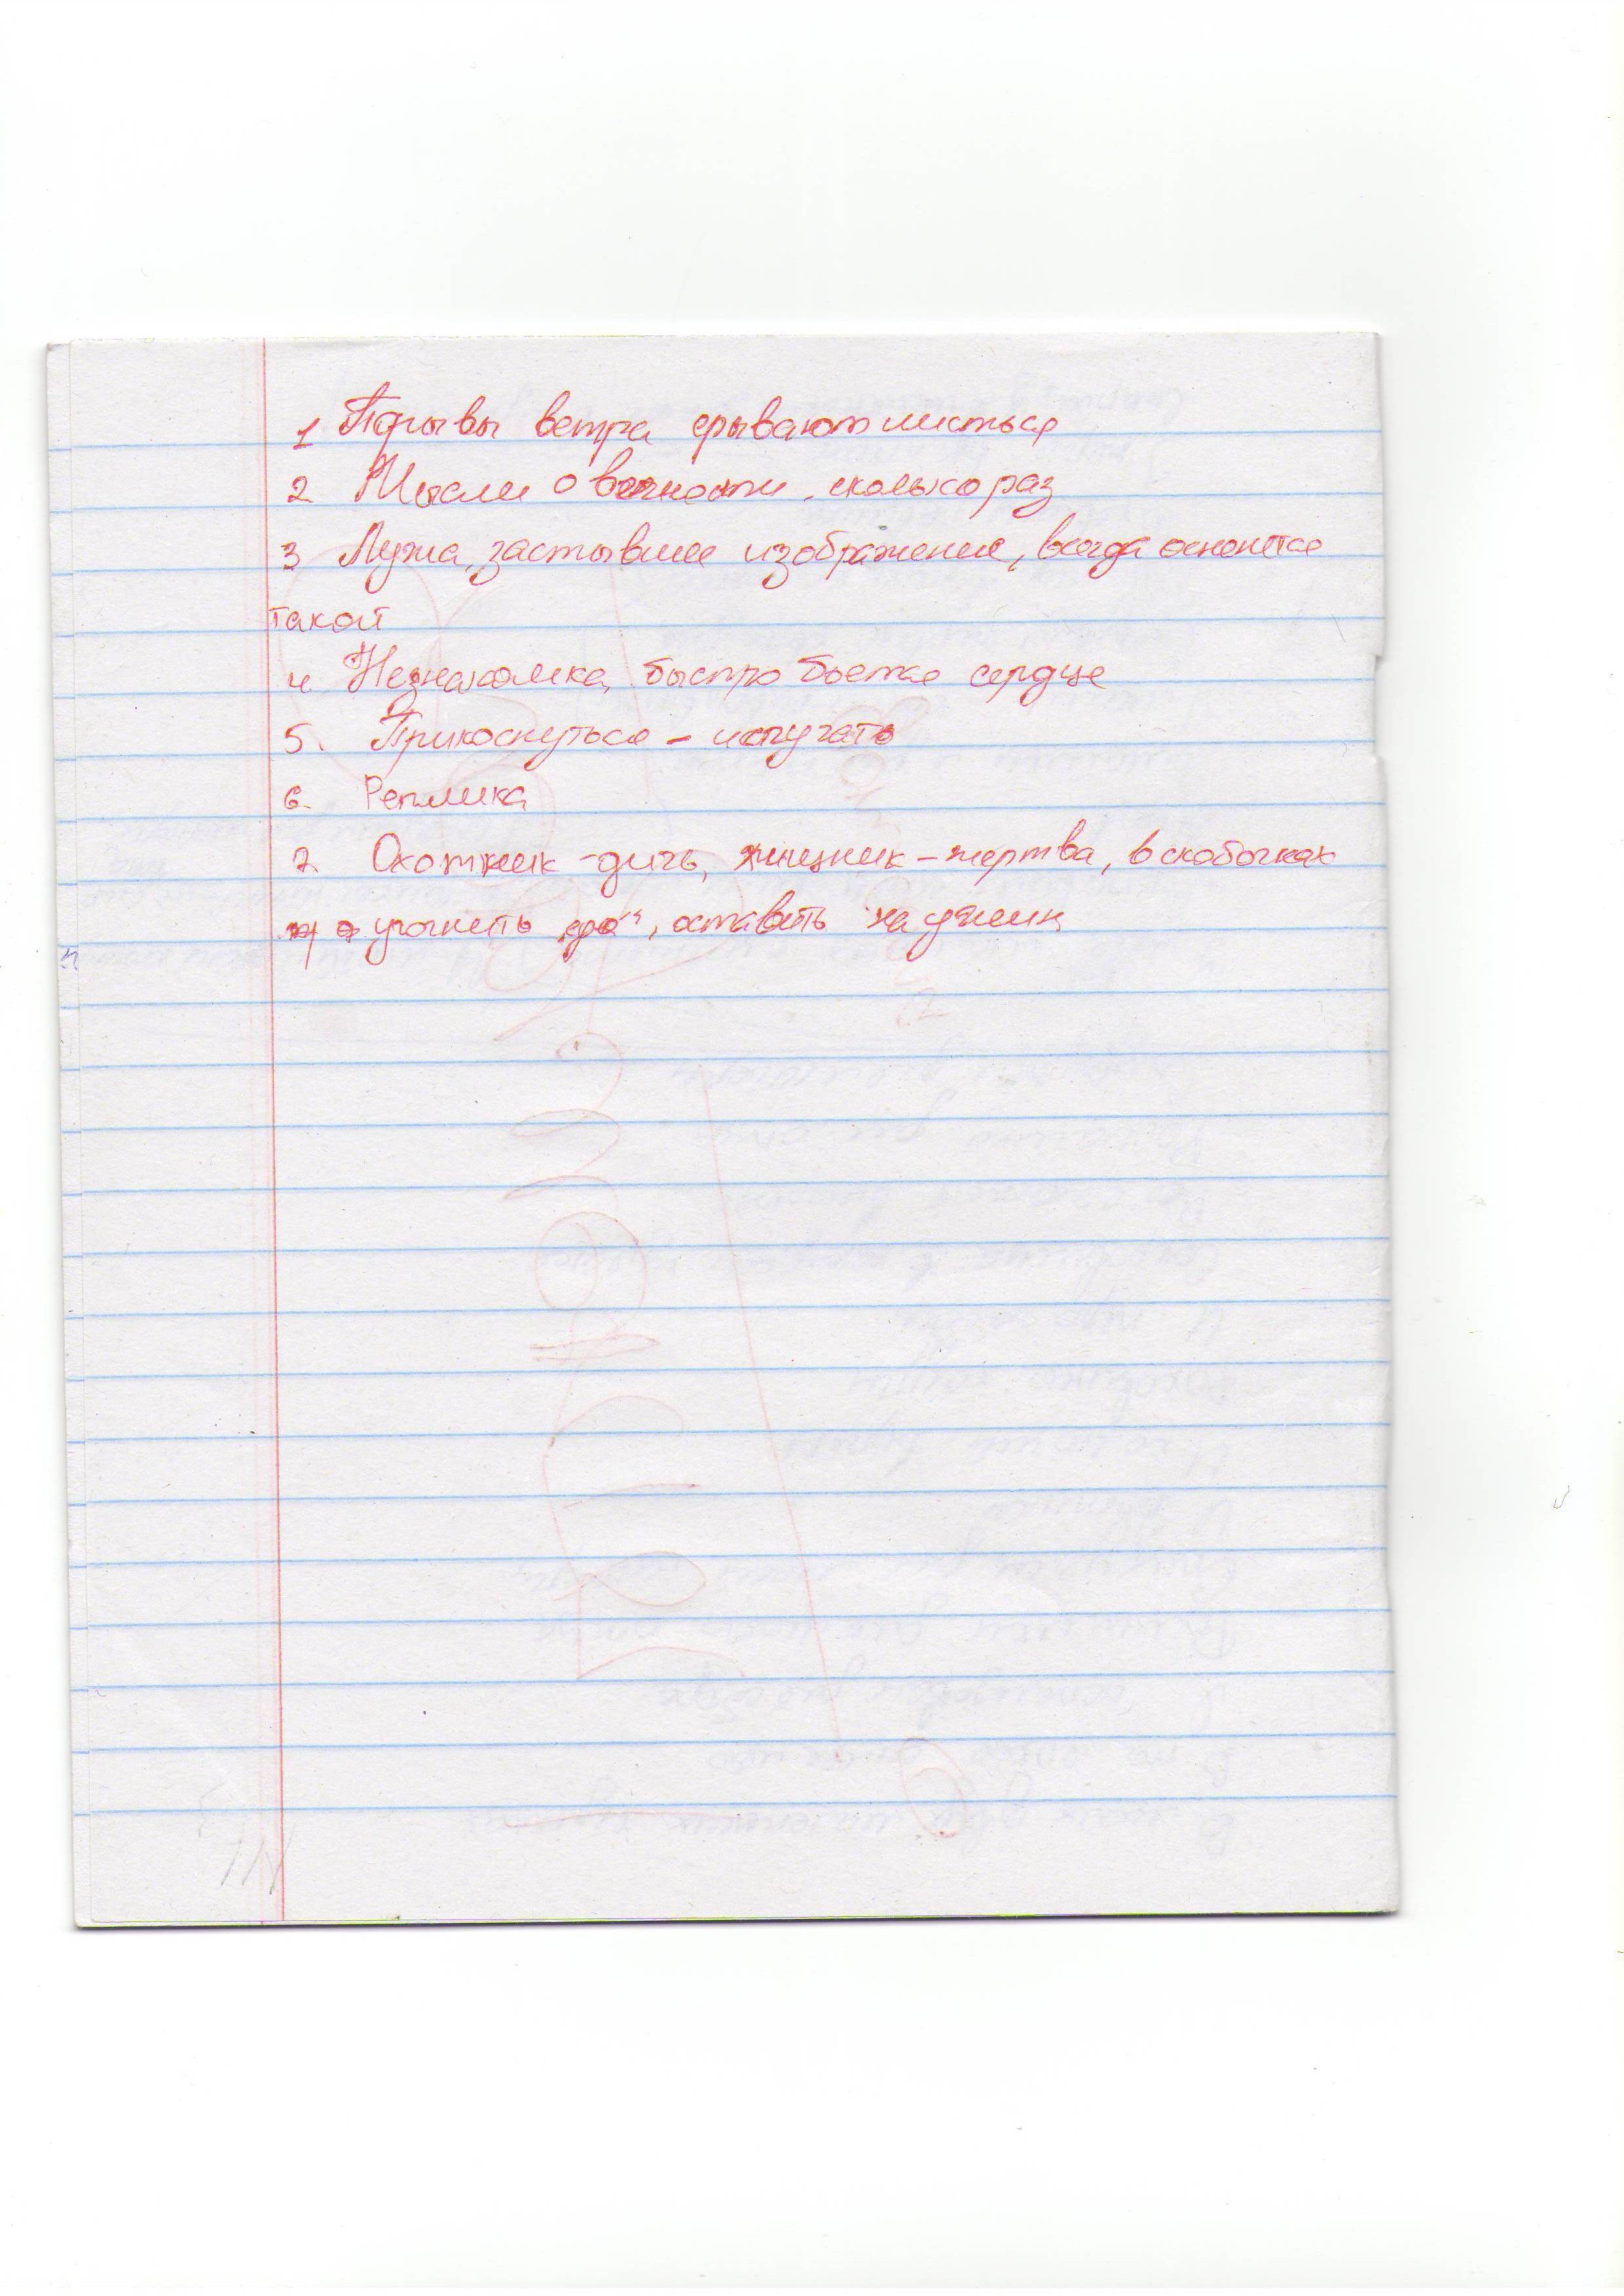 1 Порывы ветра срывают листья
2 Мысли о вечности, сколько раз
3 Лужа, застывшее изображение, всегда останется
такой
4. Незнакомка, быстро бьется сердце
5. Прикоснуться - испугать
6. Реплика
7. Охотник - дичь, хищник - жертва, в скобочках
уточнить, оставить